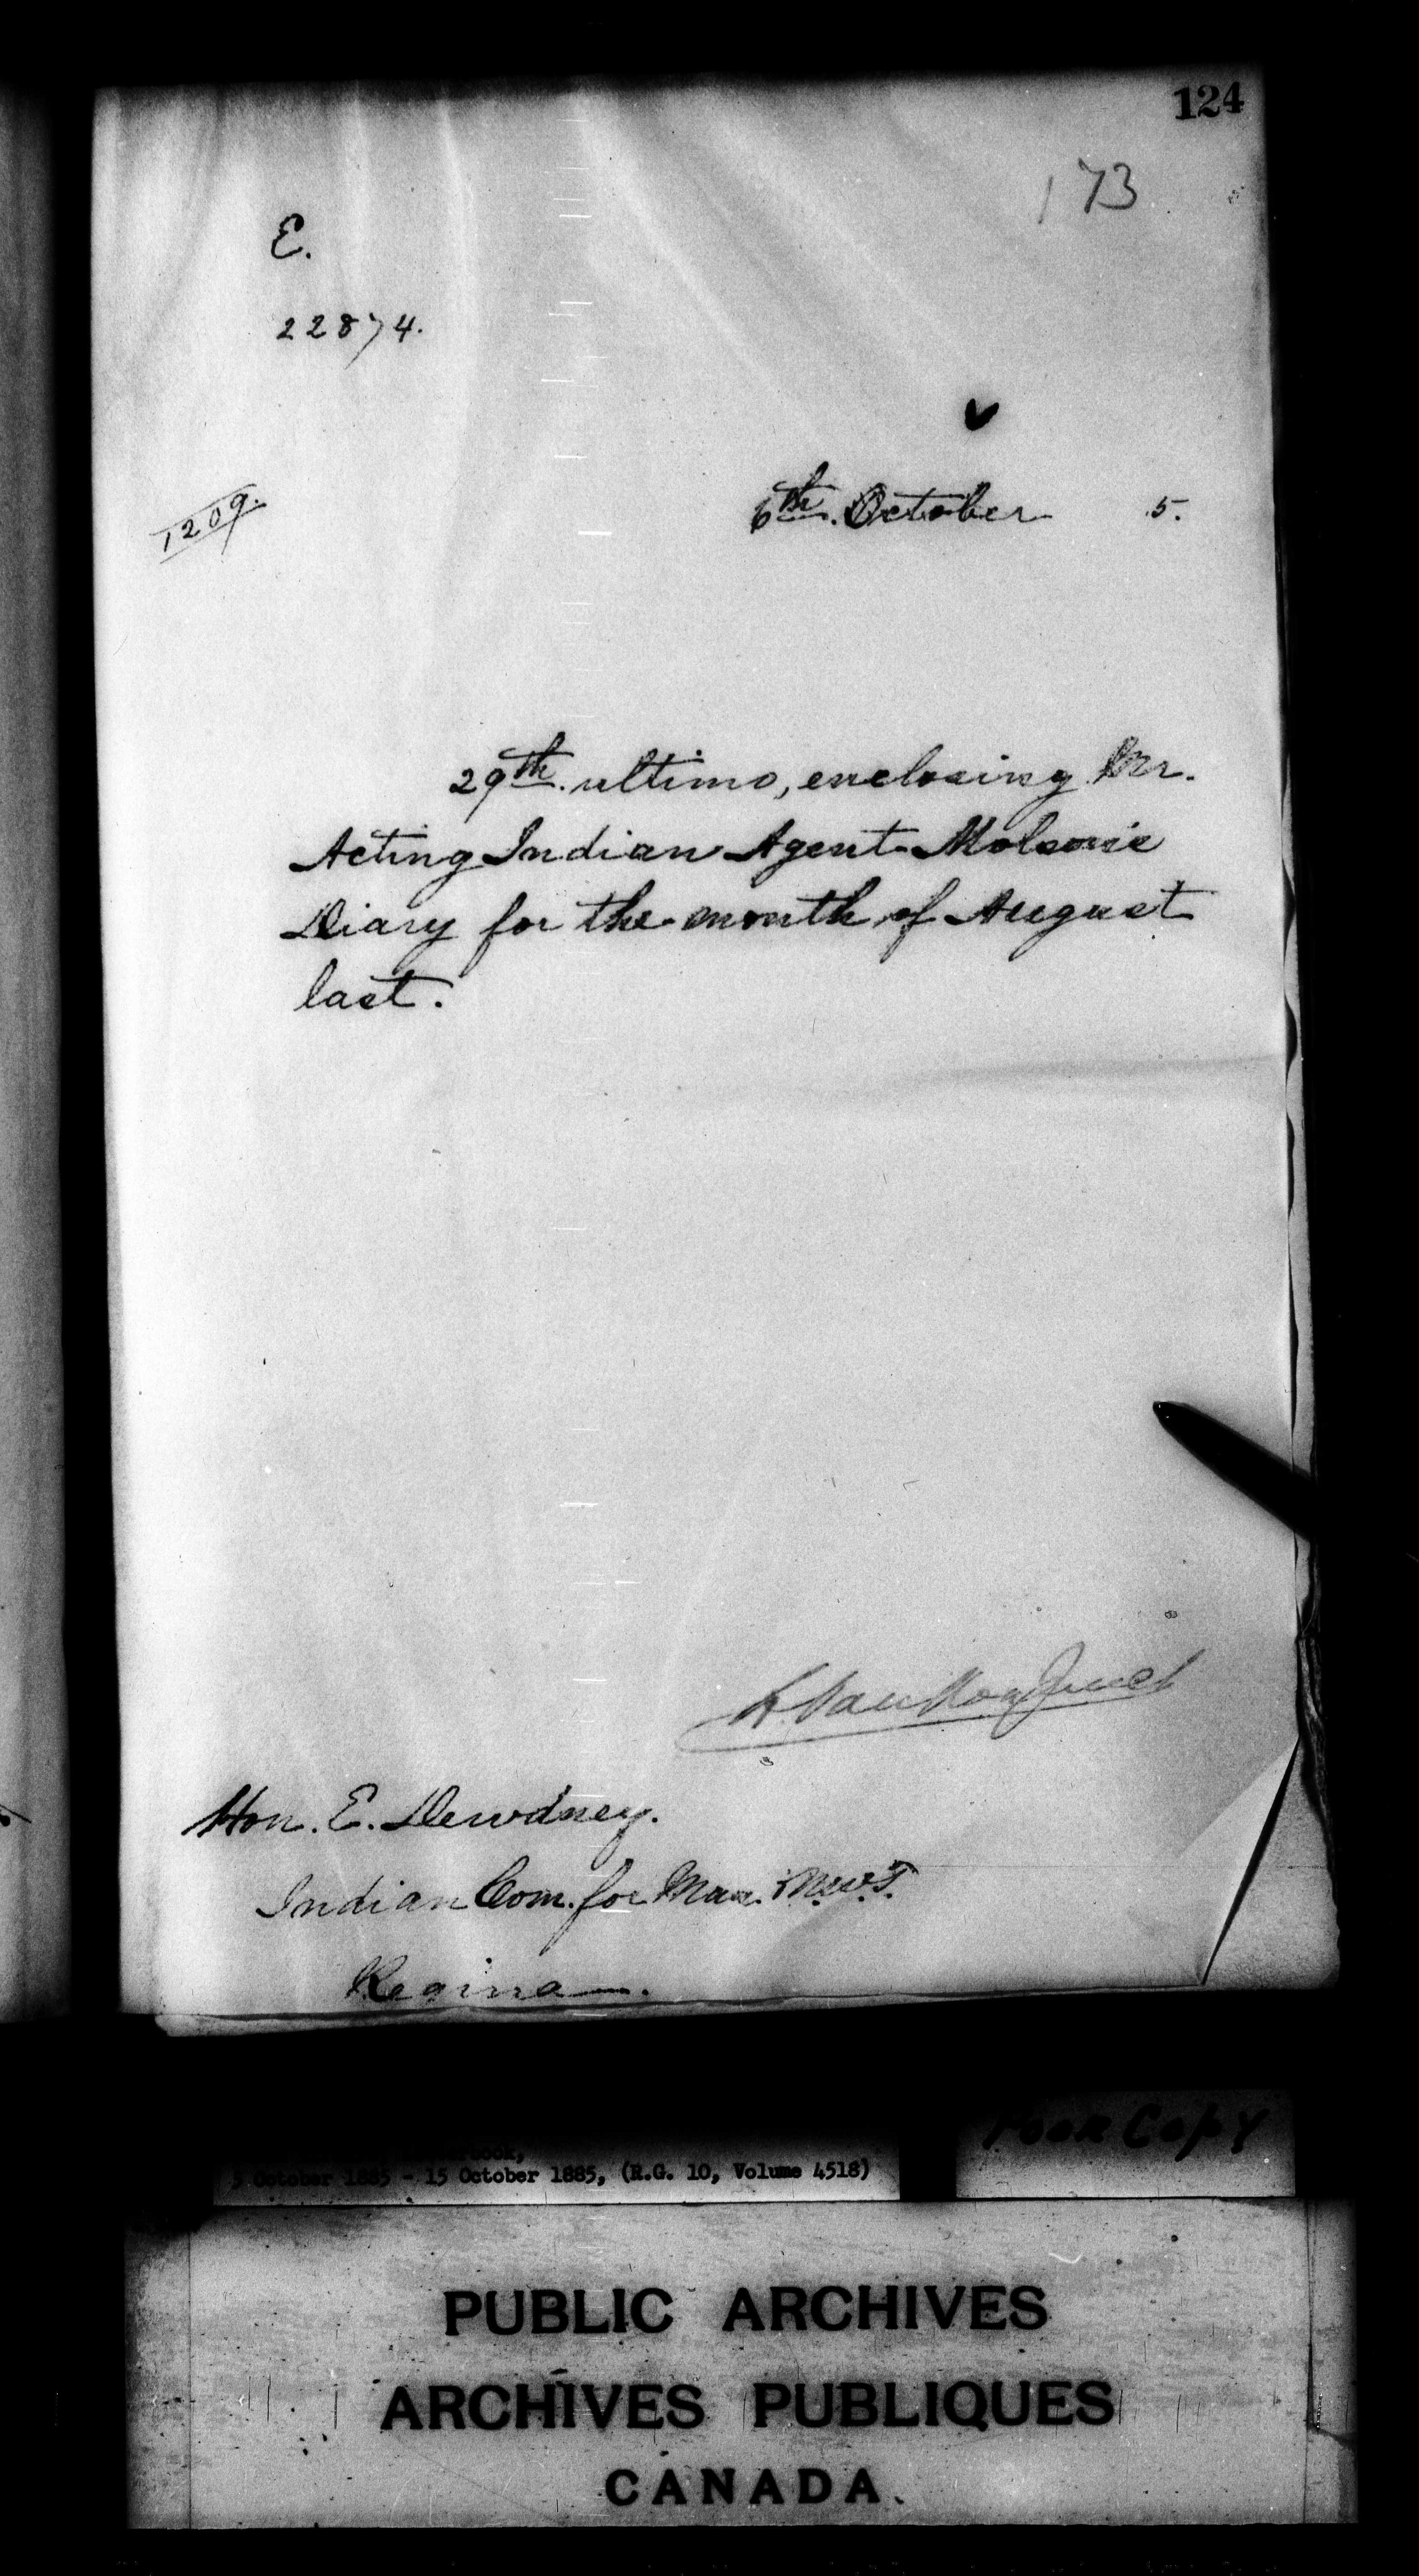 124
173
E.
22874.
6th. October 5.
1209.
29th. ultimo, enclosing Mr.
Acting Indian Agent
Diary for the month of August
last.
L. VanKoughnet
Hon. E. Dewdney.
Indian Com. for Man. & N.W.T.
Regina.
Poor Copy
5 October 1885 - 15 October 1885, (R.G. 10, Volume 4518)
PUBLIC ARCHIVES
ARCHIVES PUBLIQUES
CANADA